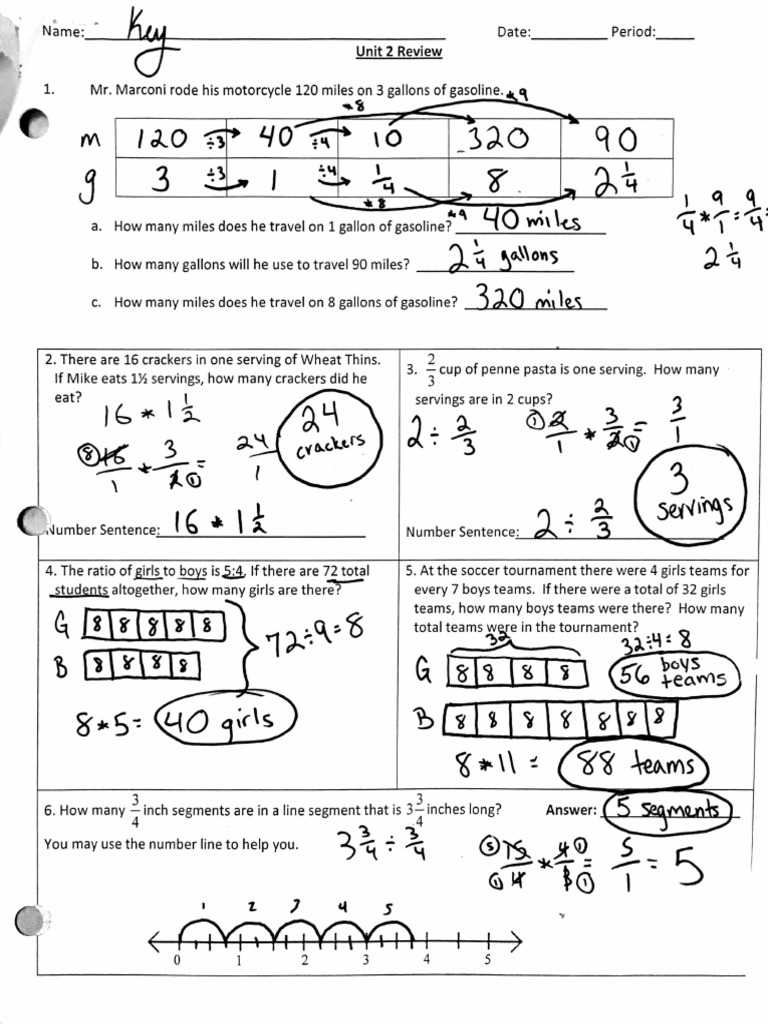 Name: Key Date: Period:
Unit 2 Review
1. Mr. Marconi rode his motorcycle 120 miles on 3 gallons of gasoline. *9
*8
m 120 ÷3 40 ÷4 10 320 90
g 3 ÷3 1 ÷4 1/4 8 2 1/4
*8
a. How many miles does he travel on 1 gallon of gasoline? *9 40 miles
1/4 * 9/1 = 9/4
2 1/4
b. How many gallons will he use to travel 90 miles? 2 1/4 gallons
c. How many miles does he travel on 8 gallons of gasoline? 320 miles
2. There are 16 crackers in one serving of Wheat Thins.
If Mike eats 1½ servings, how many crackers did he
eat?
16 * 1 1/2
8 16/1 * 3/2 1 = 24/1
24 crackers
Number Sentence: 16 * 1 1/2
3. 2/3 cup of penne pasta is one serving. How many
servings are in 2 cups?
2 ÷ 2/3
1 2/1 * 3/2 1 = 3/1
3 servings
Number Sentence: 2 ÷ 2/3
4. The ratio of girls to boys is 5:4. If there are 72 total
students altogether, how many girls are there?
G 8 8 8 8 8
B 8 8 8 8
72 ÷ 9 = 8
8 * 5 = 40 girls
5. At the soccer tournament there were 4 girls teams for
every 7 boys teams. If there were a total of 32 girls
teams, how many boys teams were there? How many
total teams were in the tournament?
32
32 ÷ 4 = 8
G 8 8 8 8
56 boys teams
B 8 8 8 8 8 8 8
8 * 11 = 88 teams
6. How many 3/4 inch segments are in a line segment that is 3 3/4 inches long? Answer: 5 segments
You may use the number line to help you.
3 3/4 ÷ 3/4
5 15/4 1 * 4 1/3 1 = 5/1 = 5
1 2 3 4 5
0 1 2 3 4 5